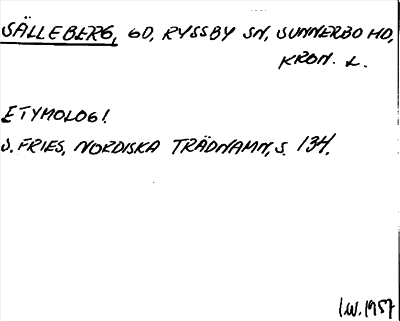 SÄLLEBERG, GD, RYSSBY SN, SUNNERBO HD,
KRON. L.
ETYMOLOGI.
S. FRIES, NORDISKA TRÄDNAMN, S. 134.
I.W. 1957